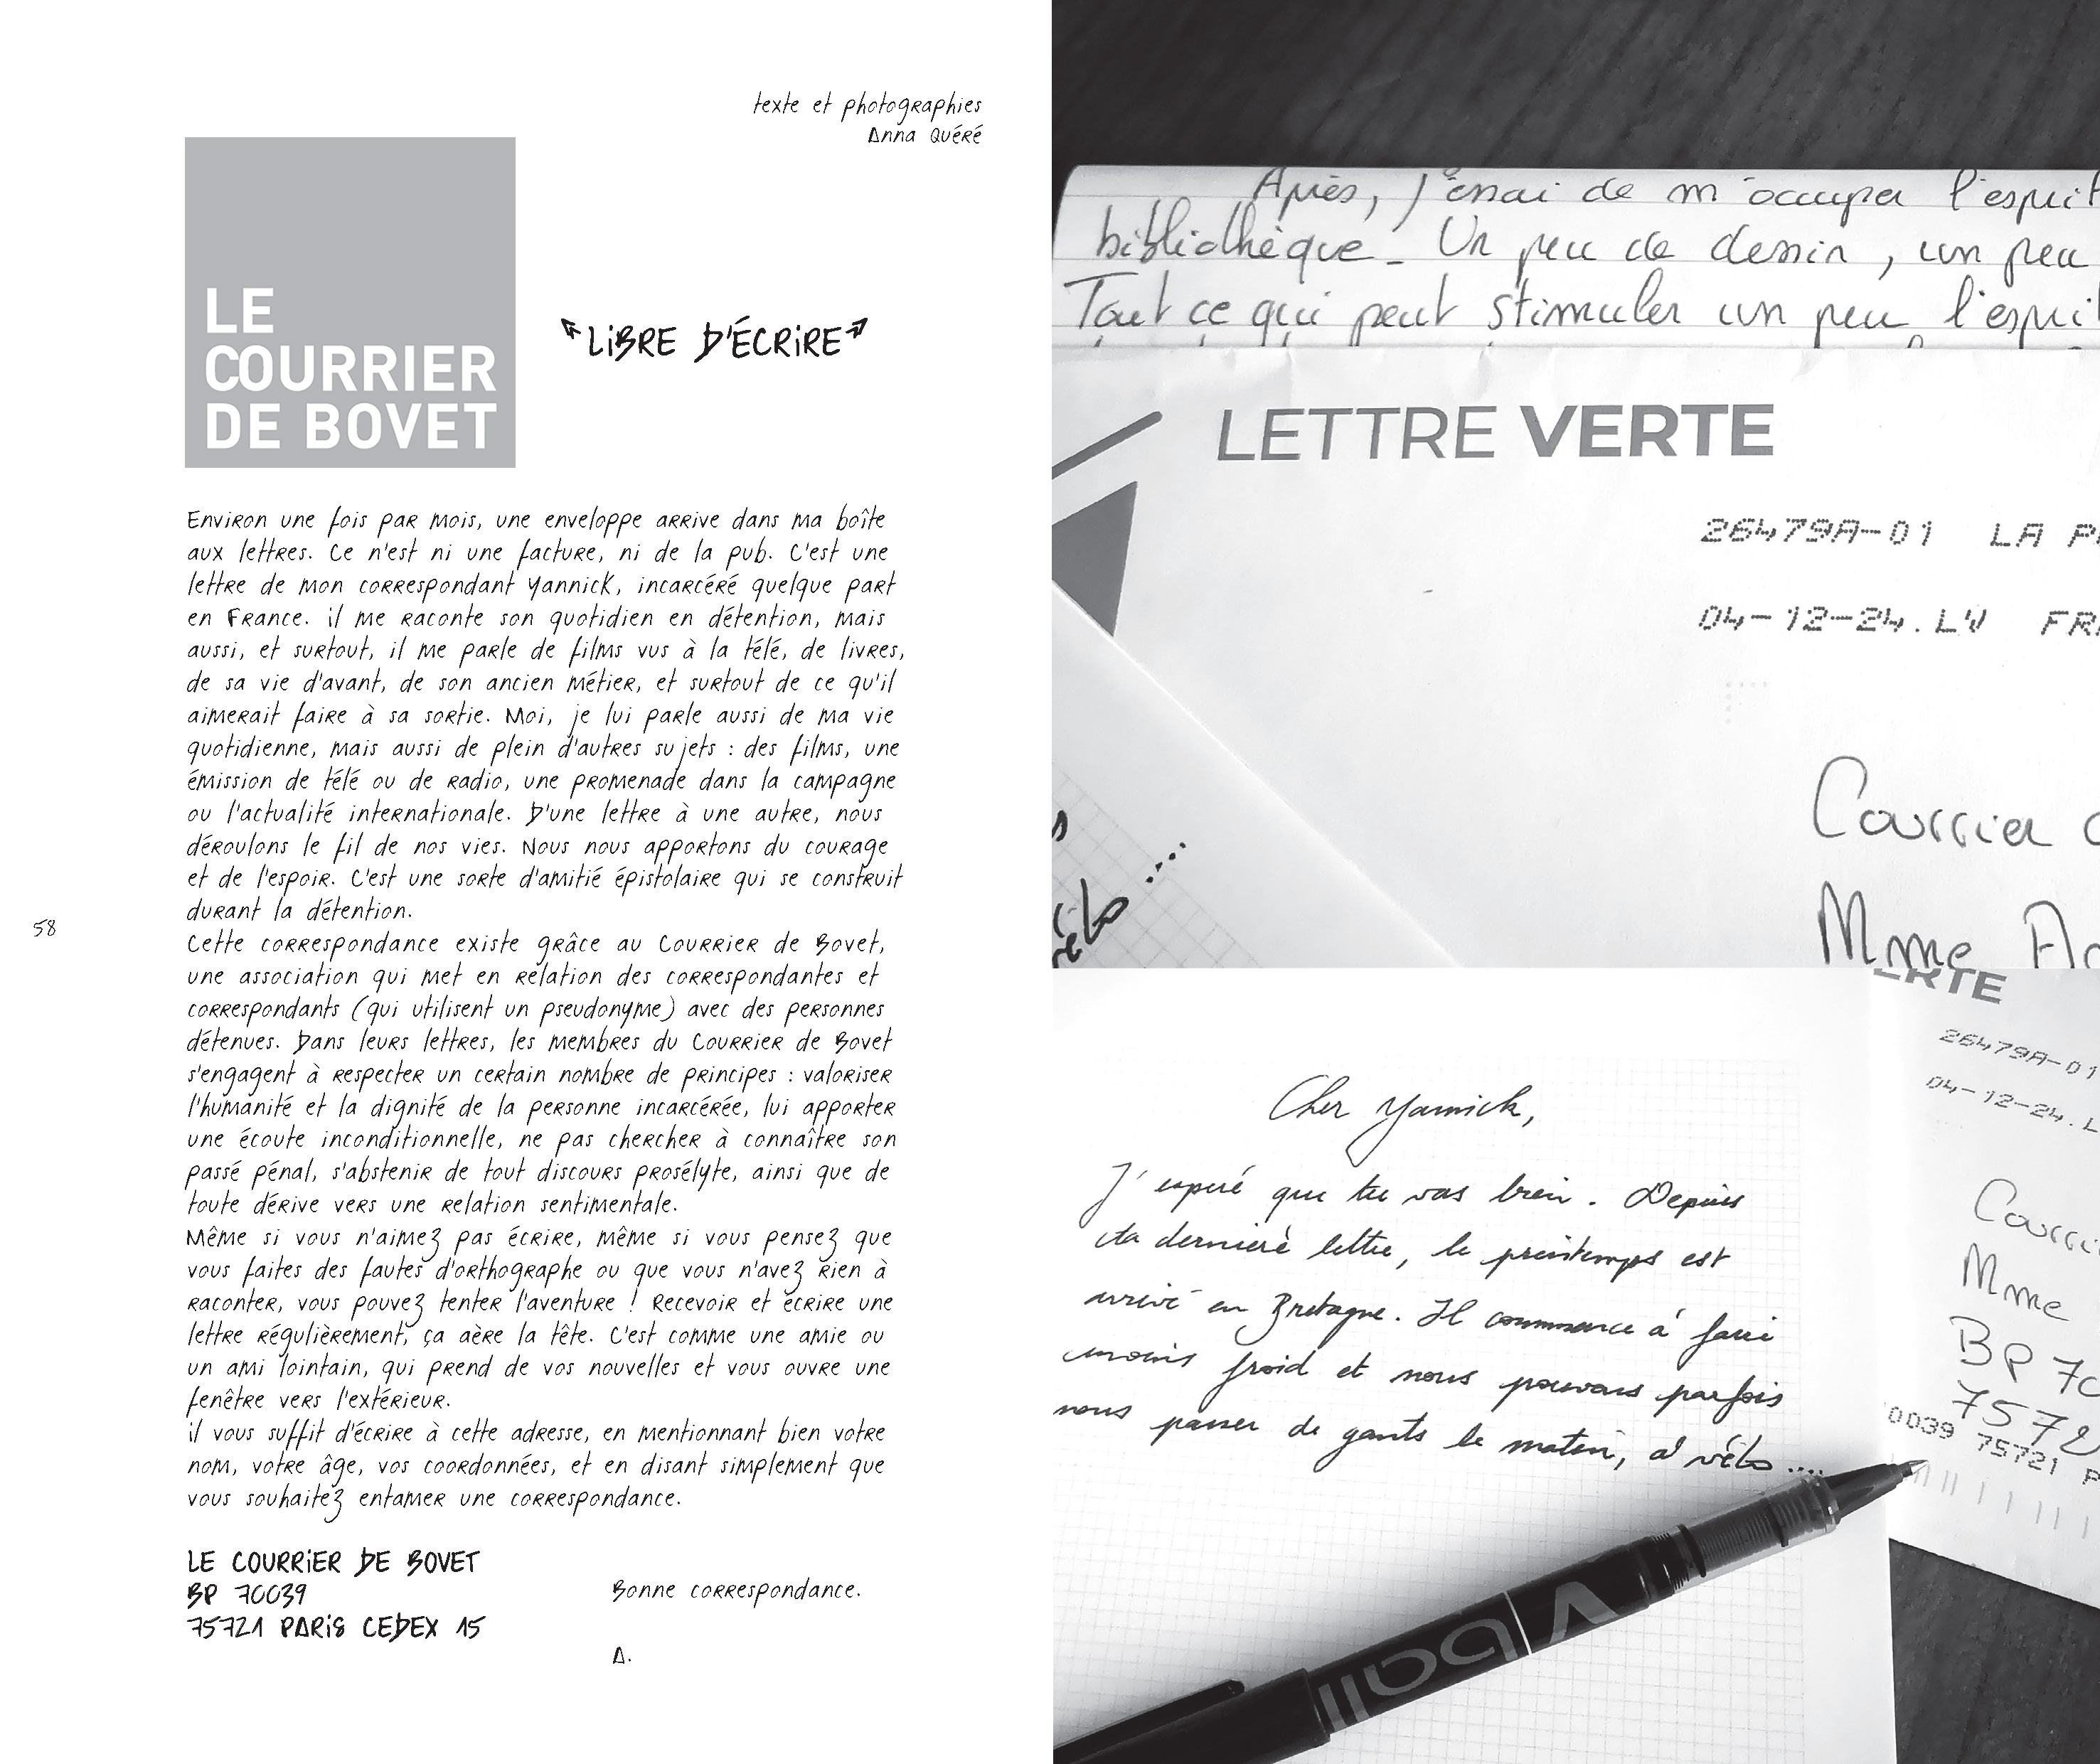 texte et photographies
Anna Quéré
LE
COURRIER
DE BOVET
"LIBRE D'ÉCRIRE"
Environ une fois par mois, une enveloppe arrive dans ma boîte
aux lettres. Ce n'est ni une facture, ni de la pub. C'est une
lettre de mon correspondant Yannick, incarcéré quelque part
en France. il me raconte son quotidien en détention, mais
aussi, et surtout, il me parle de films vus à la télé, de livres,
de sa vie d'avant, de son ancien métier, et surtout de ce qu'il
aimerait faire à sa sortie. Moi, je lui parle aussi de ma vie
quotidienne, mais aussi de plein d'autres sujets : des films, une
émission de télé ou de radio, une promenade dans la campagne
ou l'actualité internationale. D'une lettre à une autre, nous
déroulons le fil de nos vies. Nous nous apportons du courage
et de l'espoir. C'est une sorte d'amitié épistolaire qui se construit
durant la détention.
Cette correspondance existe grâce au Courrier de Bovet,
une association qui met en relation des correspondantes et
correspondants (qui utilisent un pseudonyme) avec des personnes
détenues. Dans leurs lettres, les membres du Courrier de Bovet
s'engagent à respecter un certain nombre de principes : valoriser
l'humanité et la dignité de la personne incarcérée, lui apporter
une écoute inconditionnelle, ne pas chercher à connaître son
passé pénal, s'abstenir de tout discours prosélyte, ainsi que de
toute dérive vers une relation sentimentale.
Même si vous n'aimez pas écrire, même si vous pensez que
vous faites des fautes d'orthographe ou que vous n'avez rien à
raconter, vous pouvez tenter l'aventure ! Recevoir et écrire une
lettre régulièrement, ça aère la tête. C'est comme une amie ou
un ami lointain, qui prend de vos nouvelles et vous ouvre une
fenêtre vers l'extérieur.
il vous suffit d'écrire à cette adresse, en mentionnant bien votre
nom, votre âge, vos coordonnées, et en disant simplement que
vous souhaitez entamer une correspondance.
LE COURRIER DE BOVET
BP 70039
75721 PARIS CEDEX 15
Bonne correspondance.
A.
58
Après, j'essai de m'occuper l'esprit
bibliothèque_ Un peu de dessin, un peu
Tout ce qui peut stimuler un peu l'esprit
LETTRE VERTE
26479A-01 LA P
04-12-24.LV FR
Courrier
Mme
ERTE
26479A-01
04-12-24.L
Mme
BP 70
7572
0039 75721 P
Cher Yannick,
J'espère que tu vas bien. Depuis
ta dernière lettre, le printemps est
arrivé en Bretagne. Il commence à faire
moins froid et nous pouvons parfois
nous passer de gants le matin, à vélo ....
V ball